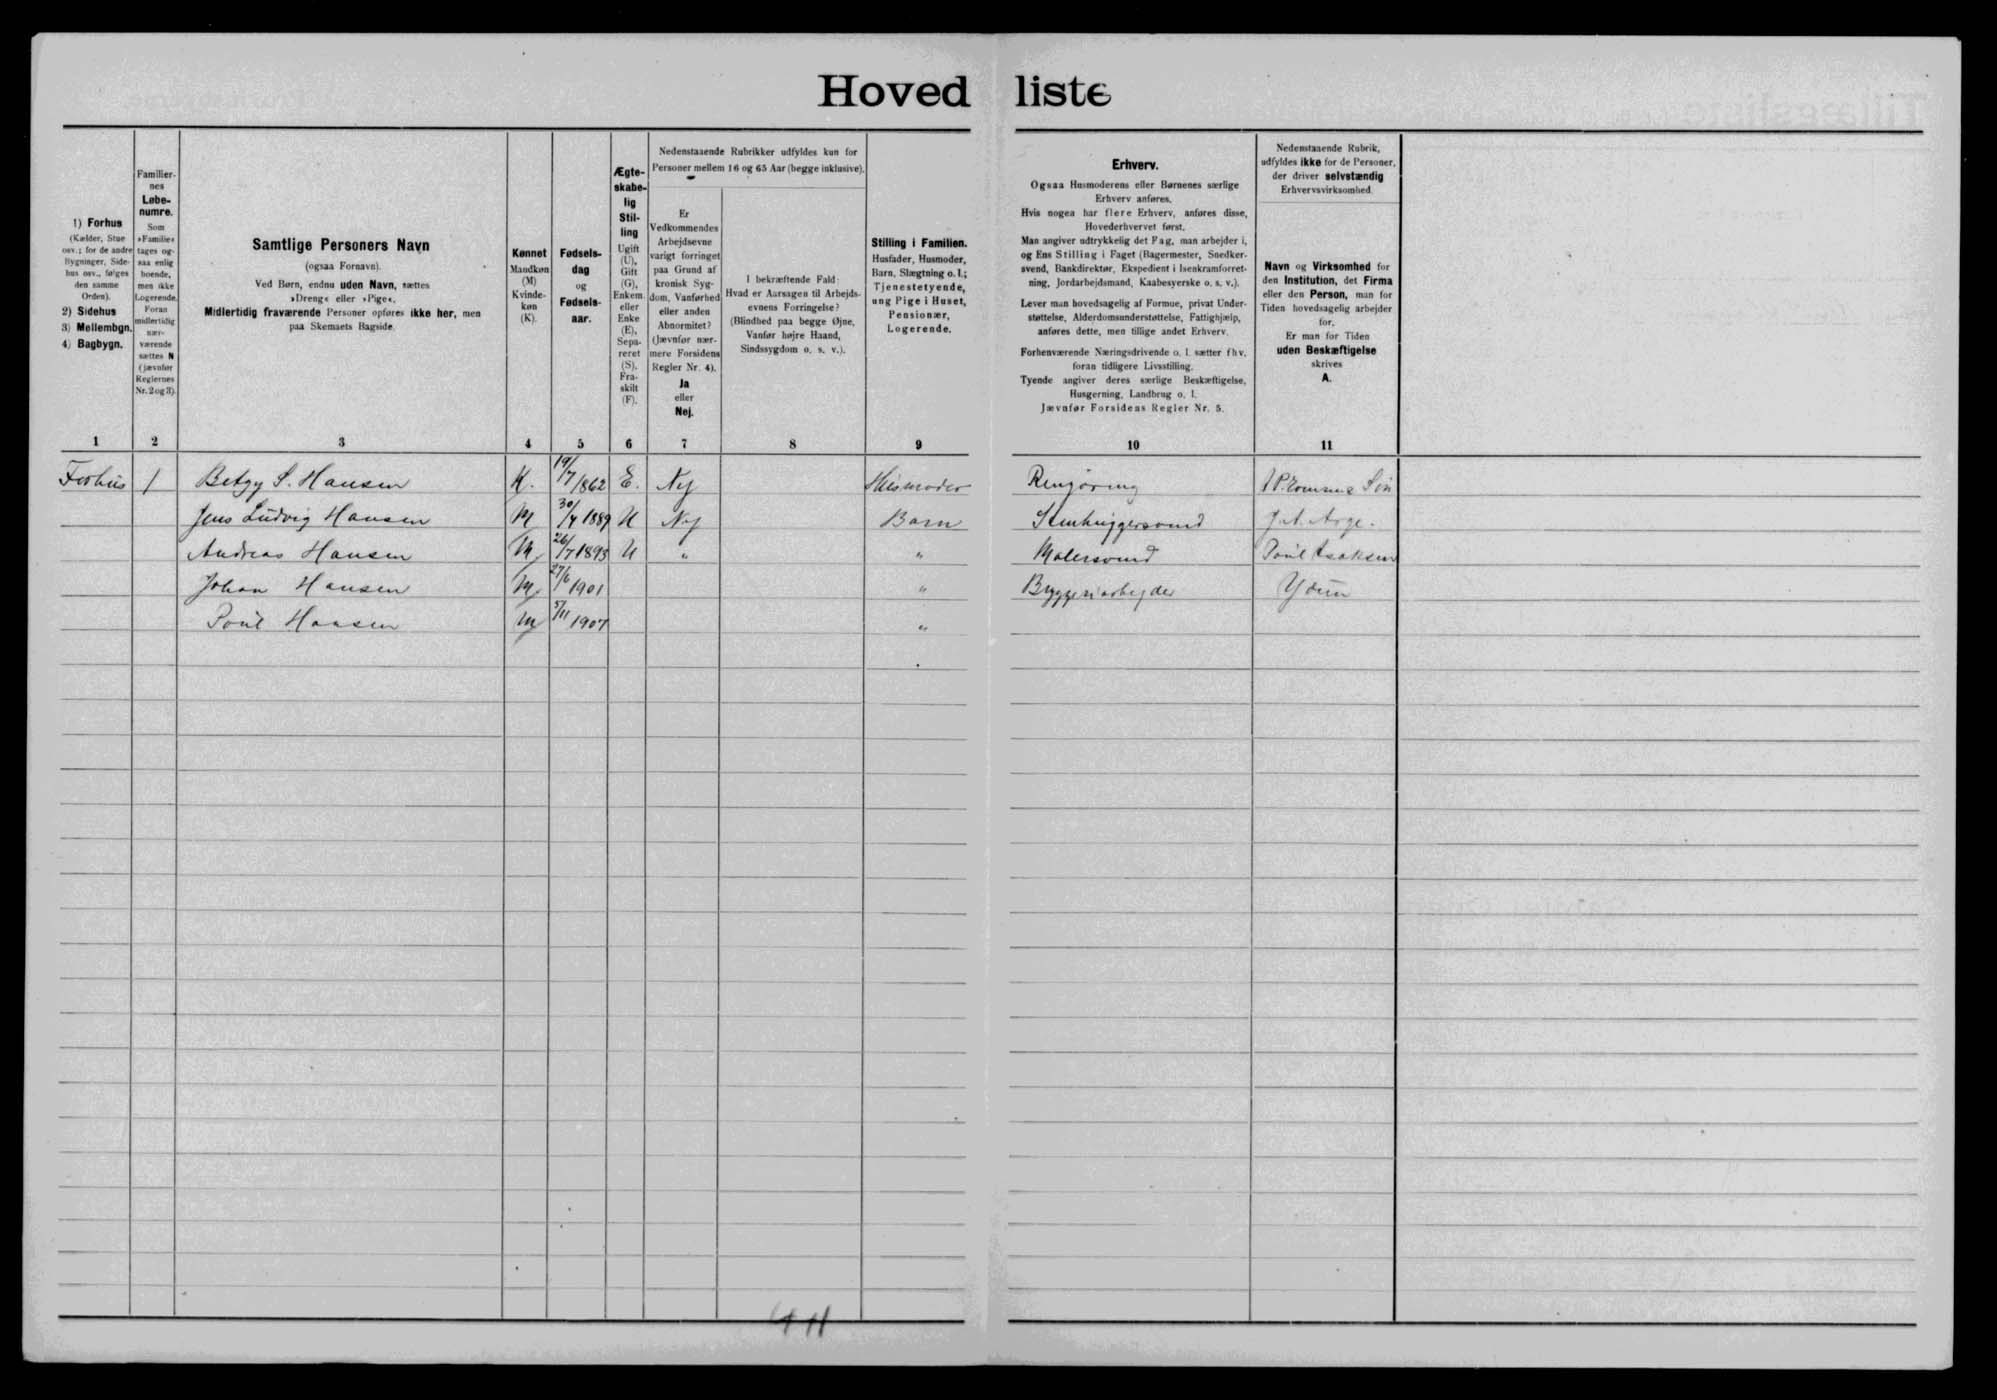 Hovedliste
1) Forhus
(Kælder, Stue
osv.; for de andre
Bygninger, Side-
hus osv., følges
den samme
Orden).
2) Sidehus
3) Mellembgn.
4) Bagbygn.
Familier-
nes
Løbe-
numre.
Som
»Familie«
tages og-
saa enlig
boende,
men ikke
Logerende.
Foran
midlertidig
nær-
værende
sættes N
(jævnfør
Reglernes
Nr. 2 og 3).
Samtlige Personers Navn
(ogsaa Fornavn).
Ved Børn, endnu uden Navn, sættes
»Dreng« eller »Pige«.
Midlertidig fraværende Personer opføres ikke her, men
paa Skemaets Bagside.
Kønnet
Mandkøn
(M)
Kvinde-
køn
(K).
Fødsels-
dag
og
Fødsels-
aar.
Ægte-
skabe-
lig
Stil-
ling
Ugift
(U),
Gift
(G),
Enkem.
eller
Enke
(E),
Sepa-
reret
(S).
Fra-
skilt
(F).
Nedenstaaende Rubrikker udfyldes kun for
Personer mellem 16 og 65 Aar (begge inklusive).
Er
Vedkommendes
Arbejdsevne
varigt forringet
paa Grund af
kronisk Syg-
dom, Vanførhed
eller anden
Abnormitet?
(Jævnfør nær-
mere Forsidens
Regler Nr. 4).
Ja
eller
Nej.
I bekræftende Fald:
Hvad er Aarsagen til Arbejds-
evnens Forringelse?
(Blindhed paa begge Øjne,
Vanfør højre Haand,
Sindssygdom o. s. v.).
Stilling i Familien.
Husfader, Husmoder,
Barn, Slægtning o. l.;
Tjenestetyende,
ung Pige i Huset,
Pensionær,
Logerende.
Erhverv.
Ogsaa Husmoderens eller Børnenes særlige
Erhverv anføres.
Hvis nogen har flere Erhverv, anføres disse,
Hovederhvervet først.
Man angiver udtrykkelig det Fag, man arbejder i,
og Ens Stilling i Faget (Bagermester, Snedker-
svend, Bankdirektør, Ekspedient i Isenkramforret-
ning, Jordarbejdsmand, Kaabesyerske o. s. v.).
Lever man hovedsagelig af Formue, privat Under-
støttelse, Alderdomsunderstøttelse, Fattighjælp,
anføres dette, men tillige andet Erhverv.
Forhenværende Næringsdrivende o. l. sætter fhv.
foran tidligere Livsstilling.
Tyende angiver deres særlige Beskæftigelse,
Husgerning, Landbrug o. l.
Jævnfør Forsidens Regler Nr. 5.
Nedenstaaende Rubrik,
udfyldes ikke for de Personer,
der driver selvstændig
Erhvervsvirksomhed.
Navn og Virksomhed for
den Institution, det Firma
eller den Person, man for
Tiden hovedsagelig arbejder
for.
Er man for Tiden
uden Beskæftigelse
skrives
A.
1 2 3 4 5 6 7 8 9 10 11
Forhus 1 Betzy S. Hansen K. 19/7 1862 E. Nej Husmoder Rengøring Søn
Jens Ludvig Hansen M 30/4 1889 U Nej Barn Stenhuggersvend J. A. Arge.
Andreas Hansen M 26/7 1893 U " " Malersvend Poul Isaksen
Johan Hansen M 27/6 1901 " Bryggeriarbejder Ydun
Poul Hansen M 5/11 1907 "